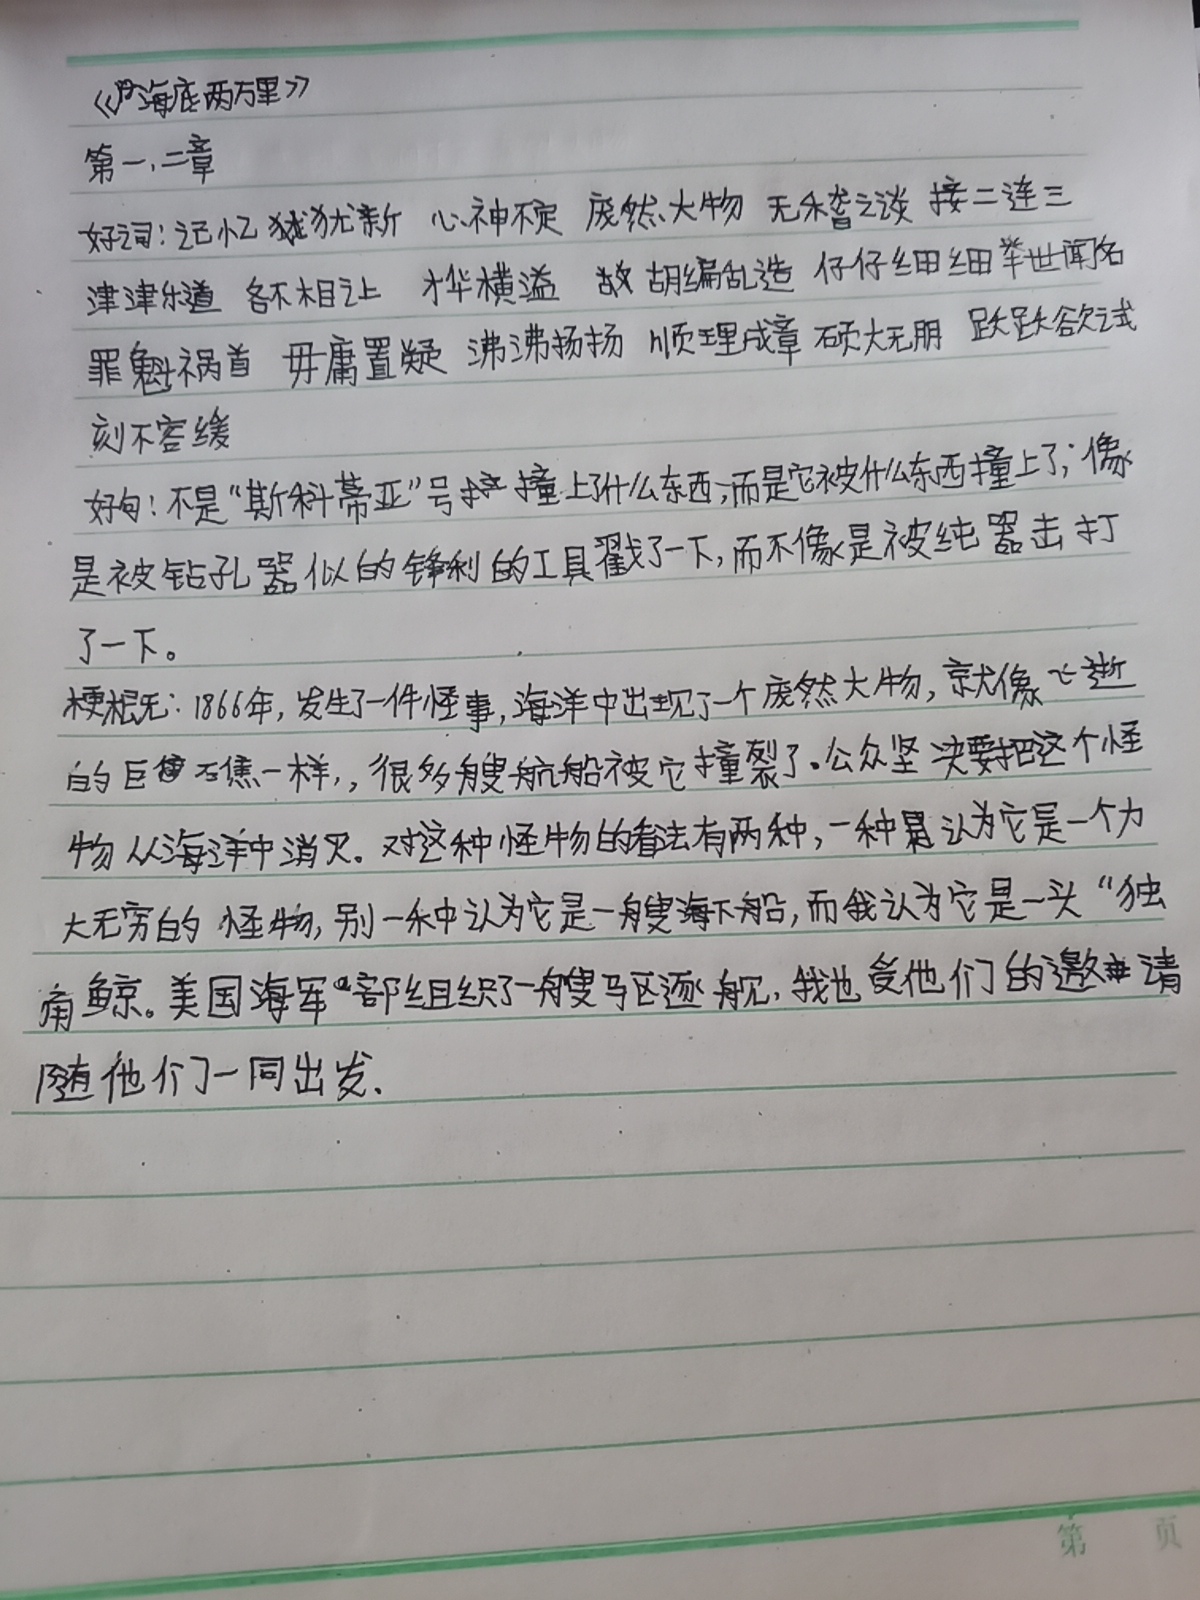 《海底两万里》
第一、二章
好词：记忆犹新 心神不定 庞然大物 无稽之谈 接二连三
津津乐道 各不相让 才华横溢 胡编乱造 仔仔细细 举世闻名
罪魁祸首 毋庸置疑 沸沸扬扬 顺理成章 硕大无朋 跃跃欲试
刻不容缓
好句：不是“斯科蒂亚”号撞上了什么东西，而是它被什么东西撞上了；像
是被钻孔器似的锋利的工具戳了一下，而不像是被纯器击打
了一下。
梗概：1866年，发生了一件怪事，海洋中出现了一个庞然大物，就像飞逝
的巨石焦一样，，很多艘航船被它撞裂了。公众坚决要把这个怪
物从海洋中消灭。对这种怪物的看法有两种，一种是认为它是一个力
大无穷的怪物，别一种认为它是一艘海下船，而我认为它是一头“独
角鲸。美国海军部组织了一艘驱逐舰，我也受他们的邀请
随他们一同出发.
第 页